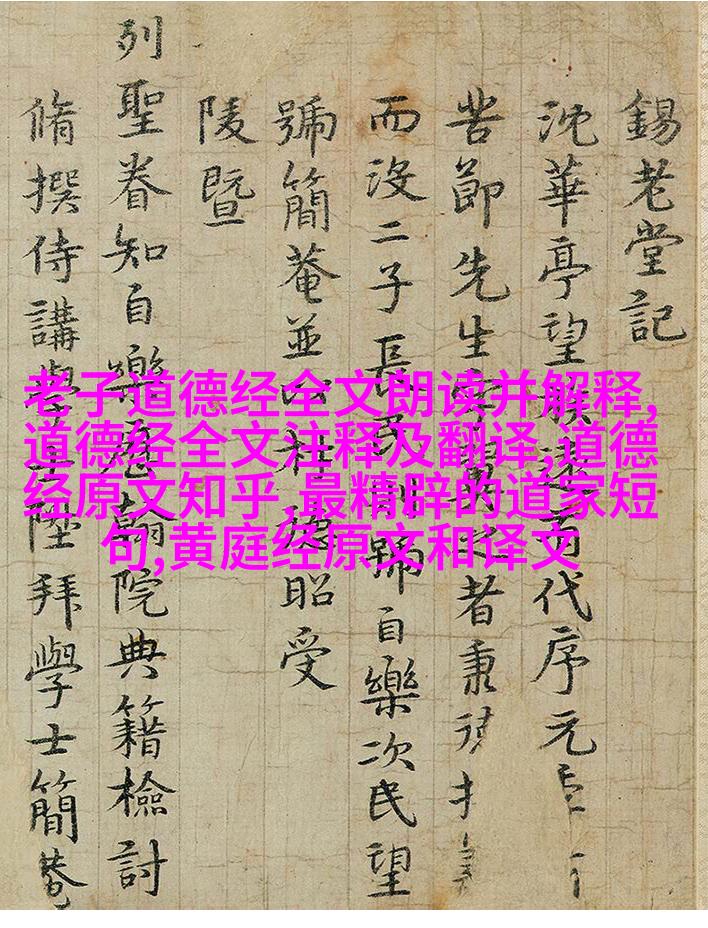 錫老堂記
沈華亭望族遠有代序元
苦節先生者秉
而没二子長民則號自樂次民望
號簡菴並以德昭受
陵暨
列聖眷知自樂翰院典籍檢討
脩撰侍講學士陞拜學士簡菴
老子道德经全文朗读并解释,
道德经全文注释及翻译,道德
经原文知乎,最精辟的道家短
句,黄庭经原文和译文